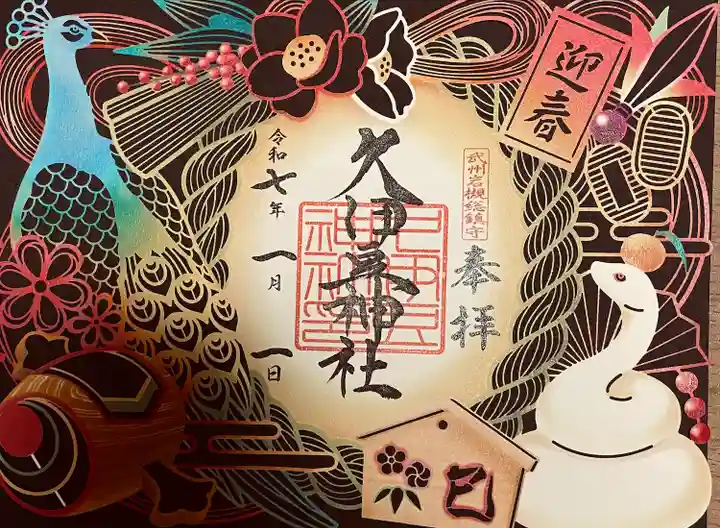 迎春
武州岩槻総鎮守
奉拝
久伊豆神社
令和七年 一月 一日
巳